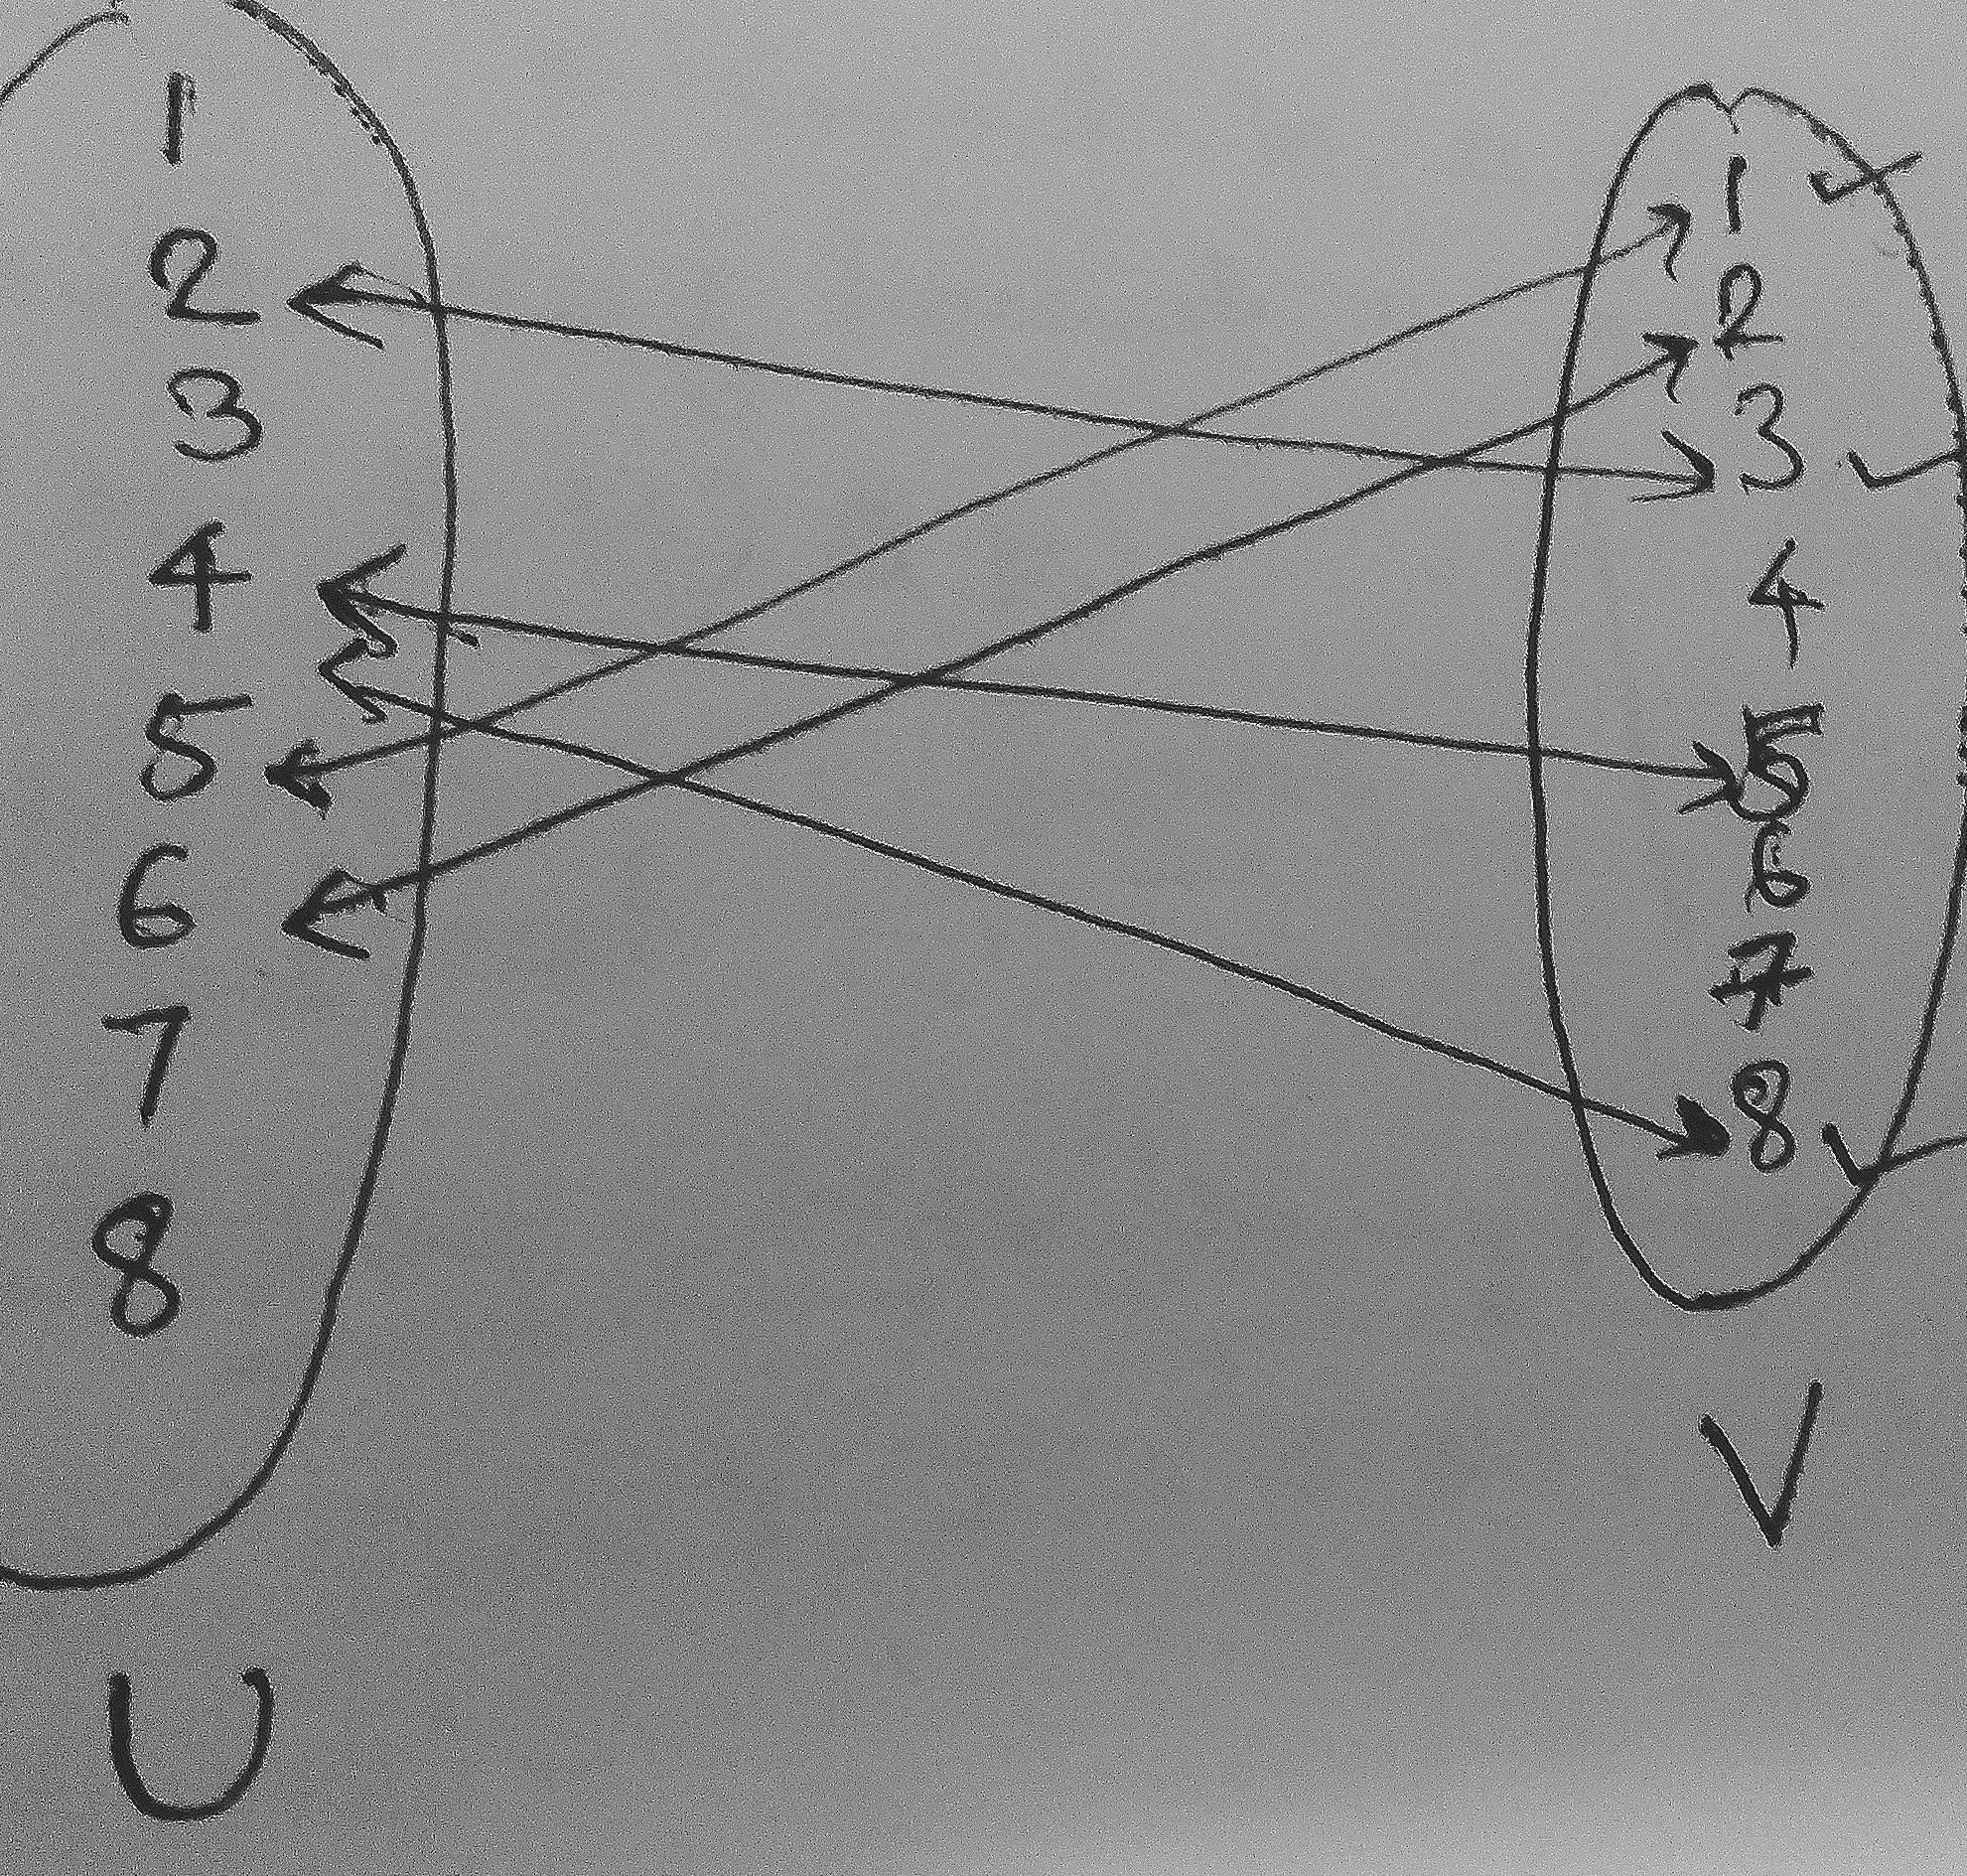 1
2
3
4
5
6
7
8
U
1 ✓
2
3 ✓
4
5
6
7
8 ✓
V